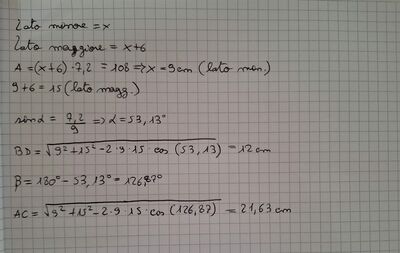 Lato minore = x
Lato maggiore = x+6
A = (x+6)·7,2 = 108 => x = 9 cm (lato min.)
9+6 = 15 (lato magg.)
sin α = 7,2/9 => α = 53,13°
BD = √9²+15²-2·9·15·cos (53,13) = 12 cm
β = 180° - 53,13° = 126,87°
AC = √9²+15²-2·9·15·cos (126,87) = 21,63 cm